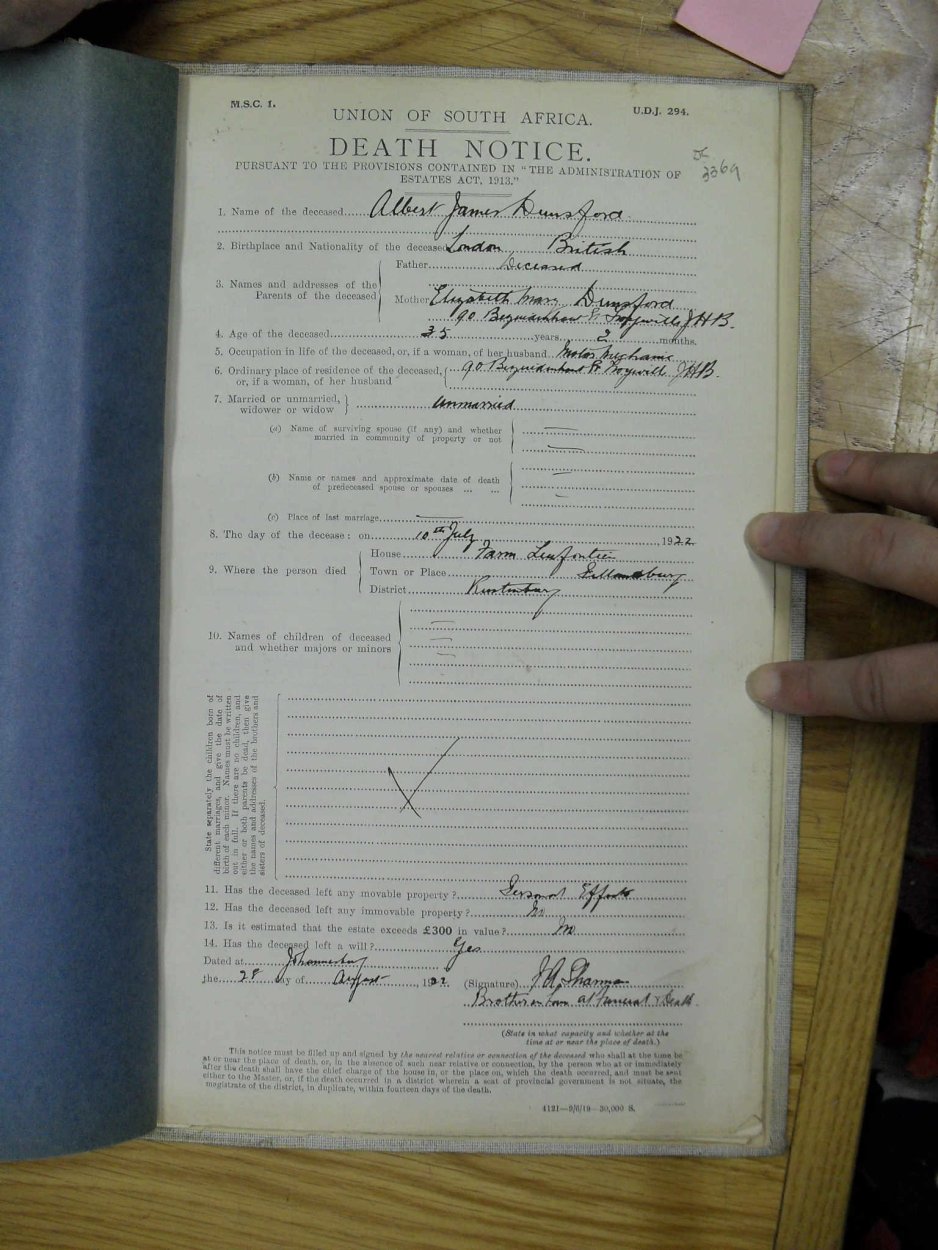 M.S.C. 1.
U.D.J. 294.
UNION OF SOUTH AFRICA.
DEATH NOTICE.
PURSUANT TO THE PROVISIONS CONTAINED IN "THE ADMINISTRATION OF
ESTATES ACT, 1913."
3369
1. Name of the deceased Albert James Dunsford
2. Birthplace and Nationality of the deceased London British
Father Deceased
3. Names and addresses of the
Parents of the deceased
Mother Elizabeth Mary Dunsford
90 St JHB.
4. Age of the deceased 35 years 2 months.
5. Occupation in life of the deceased, or, if a woman, of her husband Motor Mechanic
6. Ordinary place of residence of the deceased,
or, if a woman, of her husband
90 St JHB.
7. Married or unmarried,
widower or widow
Unmarried
(a) Name of surviving spouse (if any) and whether
married in community of property or not
(b) Name or names and approximate date of death
of predeceased spouse or spouses ... ...
(c) Place of last marriage
8. The day of the decease: on 10th July 1922
House Farm
9. Where the person died
Town or Place
District Rustenburg
10. Names of children of deceased
and whether majors or minors
State separately the children born of
different marriages, and give the date of
birth of each minor. Names must be written
out in full. If there are no children, and
either or both parents be dead, then give
the names and addresses of the brothers and
sisters of deceased.
11. Has the deceased left any movable property? Personal Effects
12. Has the deceased left any immovable property? No
13. Is it estimated that the estate exceeds £300 in value? No
14. Has the deceased left a will? Yes
Dated at Johannesburg
the 28 day of August, 1922. (Signature)
Brother in law at Funeral & Death
(State in what capacity and whether at the
time at or near the place of death.)
This notice must be filled up and signed by the nearest relative or connection of the deceased who shall at the time be
at or near the place of death, or, in the absence of such near relative or connection, by the person who at or immediately
after the death shall have the chief charge of the house in, or the place on, which the death occurred, and must be sent
either to the Master, or, if the death occurred in a district wherein a seat of provincial government is not situate, the
magistrate of the district, in duplicate, within fourteen days of the death.
4121—9/6/19—30,000 S.